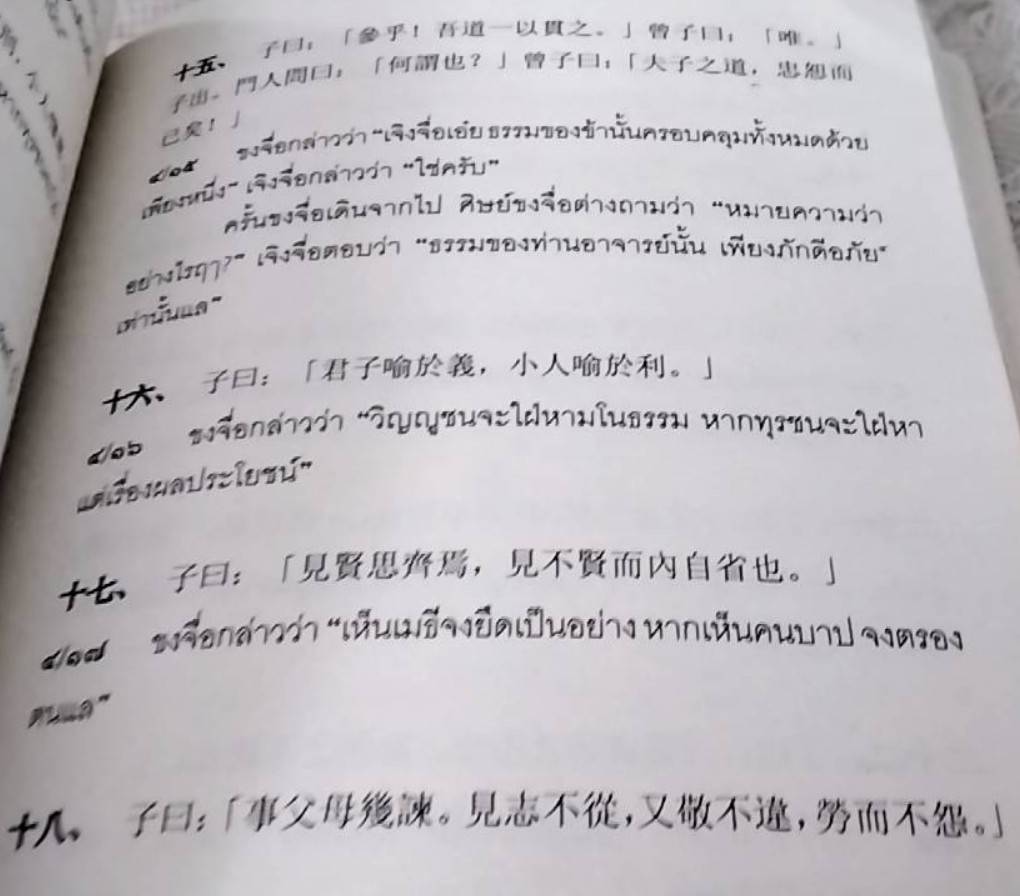 十五、 子曰：「參乎！吾道一以貫之。」曾子曰：「唯。」
子出。門人問曰：「何謂也？」曾子曰：「夫子之道，忠恕而
已矣！」
๔/๑๕ ขงจื่อกล่าวว่า “เจิงจื่อเอ๋ย ธรรมของข้านั้นครอบคลุมทั้งหมดด้วย
เพียงหนึ่ง” เจิงจื่อกล่าวว่า “ใช่ครับ”
ครั้นขงจื่อเดินจากไป ศิษย์ขงจื่อต่างถามว่า “หมายความว่า
อย่างไรฤๅ?” เจิงจื่อตอบว่า “ธรรมของท่านอาจารย์นั้น เพียงภักดีอภัย
เท่านั้นแล”
十六、 子曰：「君子喻於義，小人喻於利。」
๔/๑๖ ขงจื่อกล่าวว่า “วิญญูชนจะใฝ่หามโนธรรม หากทุรชนจะใฝ่หา
แต่เรื่องผลประโยชน์”
十七、 子曰：「見賢思齊焉，見不賢而內自省也。」
๔/๑๗ ขงจื่อกล่าวว่า “เห็นเมธีจงยึดเป็นอย่าง หากเห็นคนบาป จงตรอง
ตนแล”
十八、 子曰：「事父母幾諫。見志不從，又敬不違，勞而不怨。」